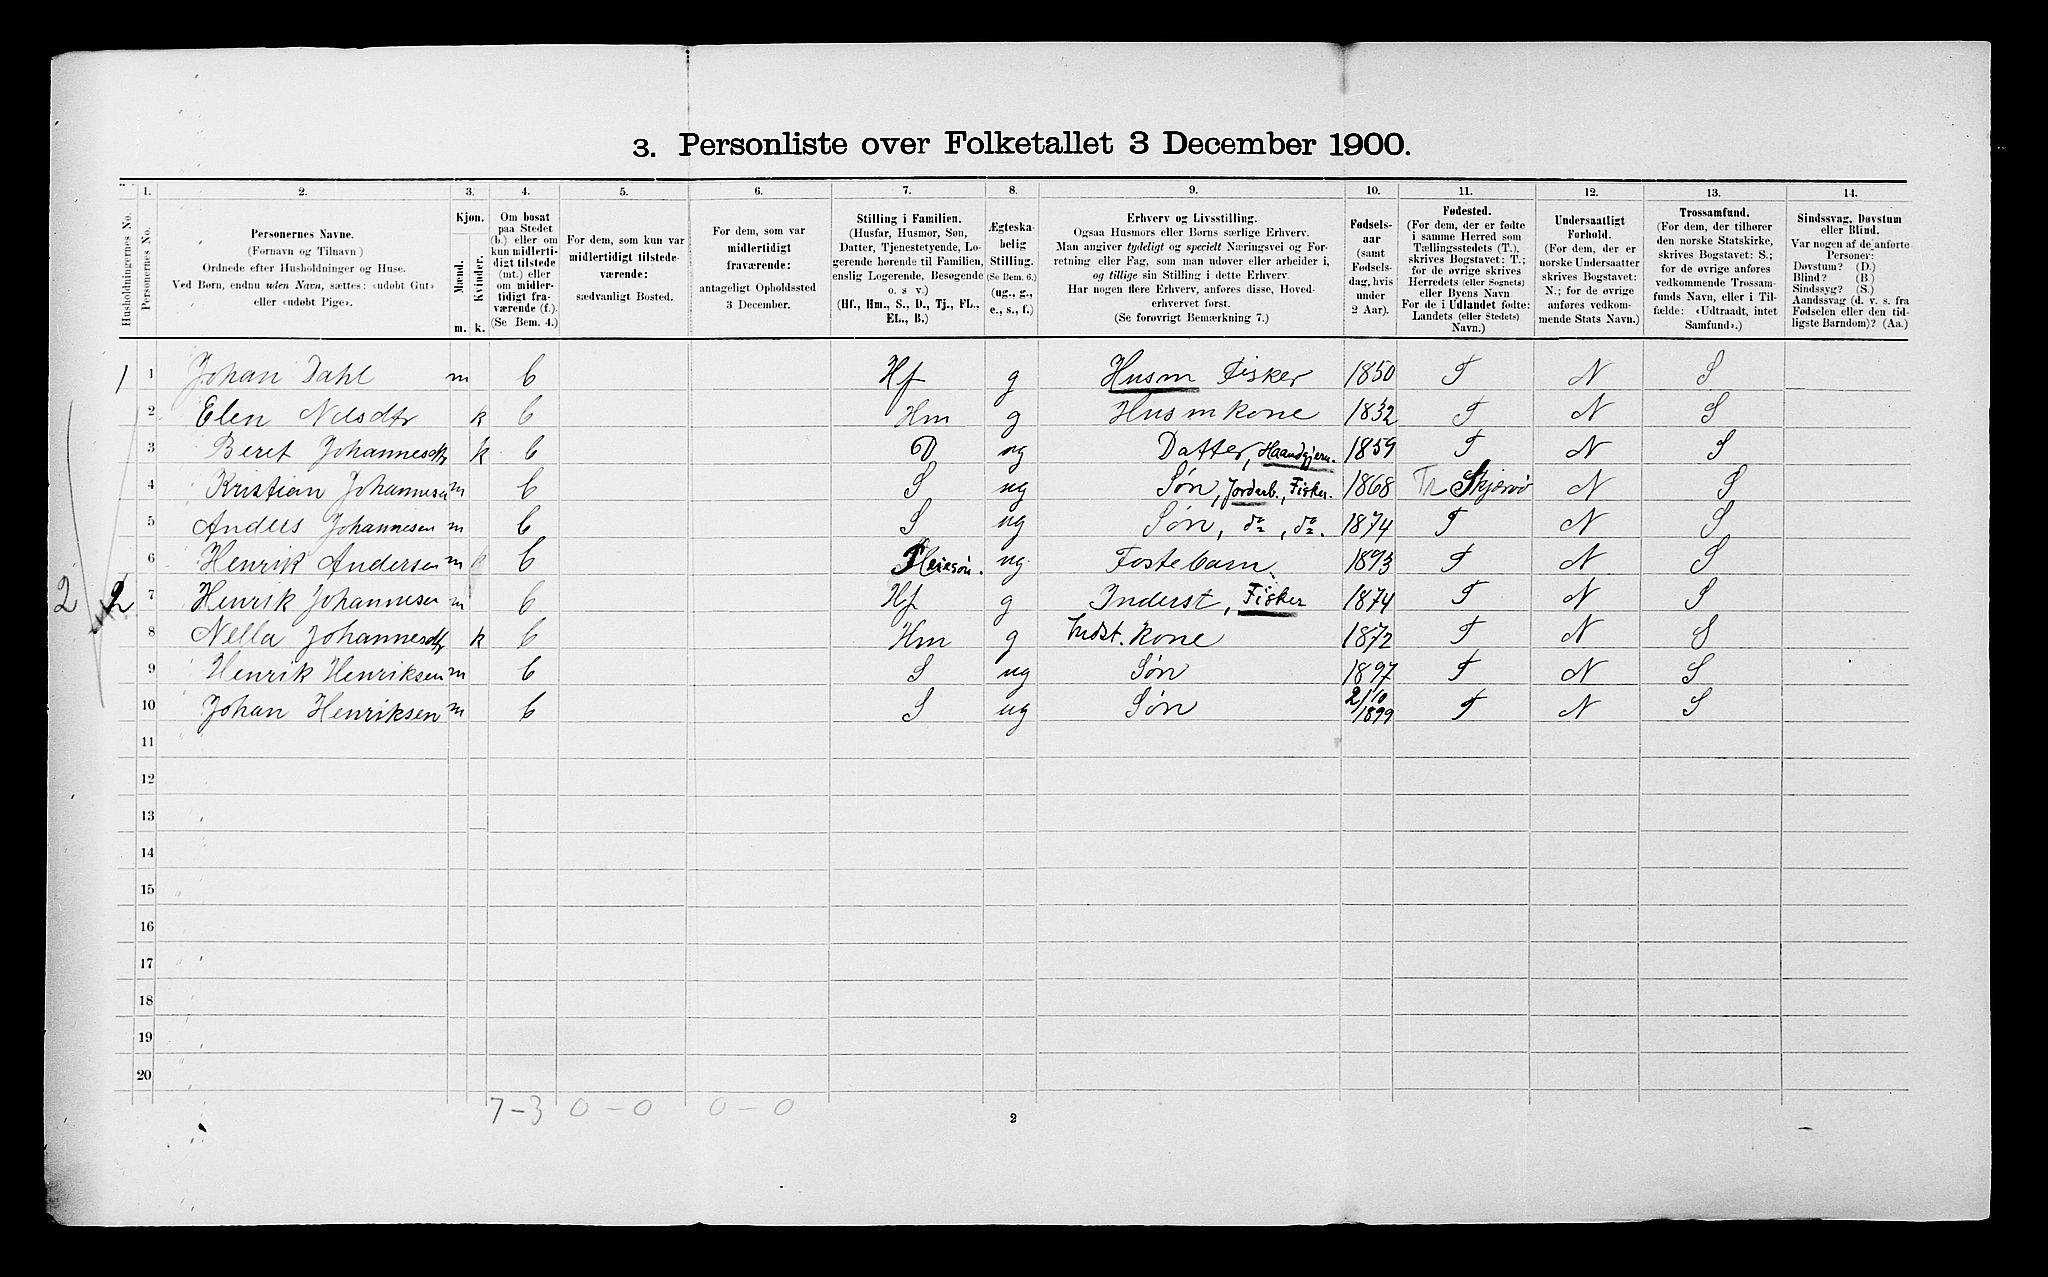 3. Personliste over Folketallet 3 December 1900.
1. 2. 3. 4. 5. 6. 7. 8. 9. 10. 11. 12. 13. 14.
Husholdningernes No.
Personernes No.
Personernes Navne.
(Fornavn og Tilnavn)
Ordnede efter Husholdninger og Huse.
Ved Børn, endnu uden Navn, sættes: «udøbt Gut»
eller «udøbt Pige».
Kjøn.
Mænd.
Kvinder.
m. k.
Om bosat
paa Stedet
(b.) eller om
kun midlerti-
digt tilstede
(mt.) eller
om midler-
tidigt fra-
værende (f.).
(Se Bem. 4.)
For dem, som kun var
midlertidigt tilstede-
værende:
sædvanligt Bosted.
For dem, som var
midlertidigt
fraværende:
antageligt Opholdssted
3 December.
Stilling i Familien.
(Husfar, Husmor, Søn,
Datter, Tjenestetyende, Lo-
gerende hørende til Familien,
enslig Logerende, Besøgende
o. s v.)
(Hf., Hm., S., D., Tj., FL.,
EL., B.)
Ægteska-
belig
Stilling.
(Se Bem. 6.)
(ug., g.,
e., s., f.)
Erhverv og Livsstilling.
Ogsaa Husmors eller Børns særlige Erhverv.
Man angiver tydeligt og specielt Næringsvei og For-
retning eller Fag, som man udøver eller arbeider i,
og tillige sin Stilling i dette Erhverv.
Har nogen flere Erhverv, anføres disse, Hoved-
erhvervet først.
(Se forøvrigt Bemærkning 7.)
Fødsels-
aar
(samt
Fødsels-
dag, hvis
under
2 Aar).
Fødested.
(For dem, der er fødte
i samme Herred som
Tællingsstedets (T.),
skrives Bogstavet: T.;
for de øvrige skrives
Herredets (eller Sognets)
eller Byens Navn
For de i Udlandet fødte:
Landets (eller Stedets)
Navn.)
Undersaatligt
Forhold.
(For dem, der er
norske Undersaatter
skrives Bogstavet:
N.; for de øvrige
anføres vedkom-
mende Stats Navn.)
Trossamfund.
(For dem, der tilhører
den norske Statskirke,
skrives Bogstavet: S.;
for de øvrige anføres
vedkommende Trossam-
funds Navn, eller i Til-
fælde: «Udtraadt, intet
Samfund».)
Sindssvag, Døvstum
eller Blind.
Var nogen af de anførte
Personer:
Døvstum? (D.)
Blind? (B.)
Sindssyg? (S.)
Aandssvag (d. v. s. fra
Fødselen eller den tid-
ligste Barndom)? (Aa.)
1 1 Johan Dahl m b Hf g Husm Fisker 1850 T N S
2 Elen Nilsdtr k b Hm g Husmkone 1832 T N S
3 Beret Johannesdtr k b D ug Datter, Haandgjern. 1859 T N S
4 Kristian Johannesen m b S ug Søn, Jordarb., Fisker. 1868 Tr Skjærvø N S
5 Anders Johannesen m b S ug Søn, do, do. 1874 T N S
6 Henrik Andersen m b Pleiesøn. ug Fostebarn 1893 T N S
2 2 7 Henrik Johannesen m b Hf g Inderst, Fisker 1874 T N S
8 Nella Johannesdtr k b Hm g Indst. kone 1872 T N S
9 Henrik Henriksen m b S ug Søn 1897 T N S
10 Johan Henriksen m b S ug Søn 2/10 1899 T N S
11
12
13
14
15
16
17
18
19
20
7-3 0-0 0-0
2